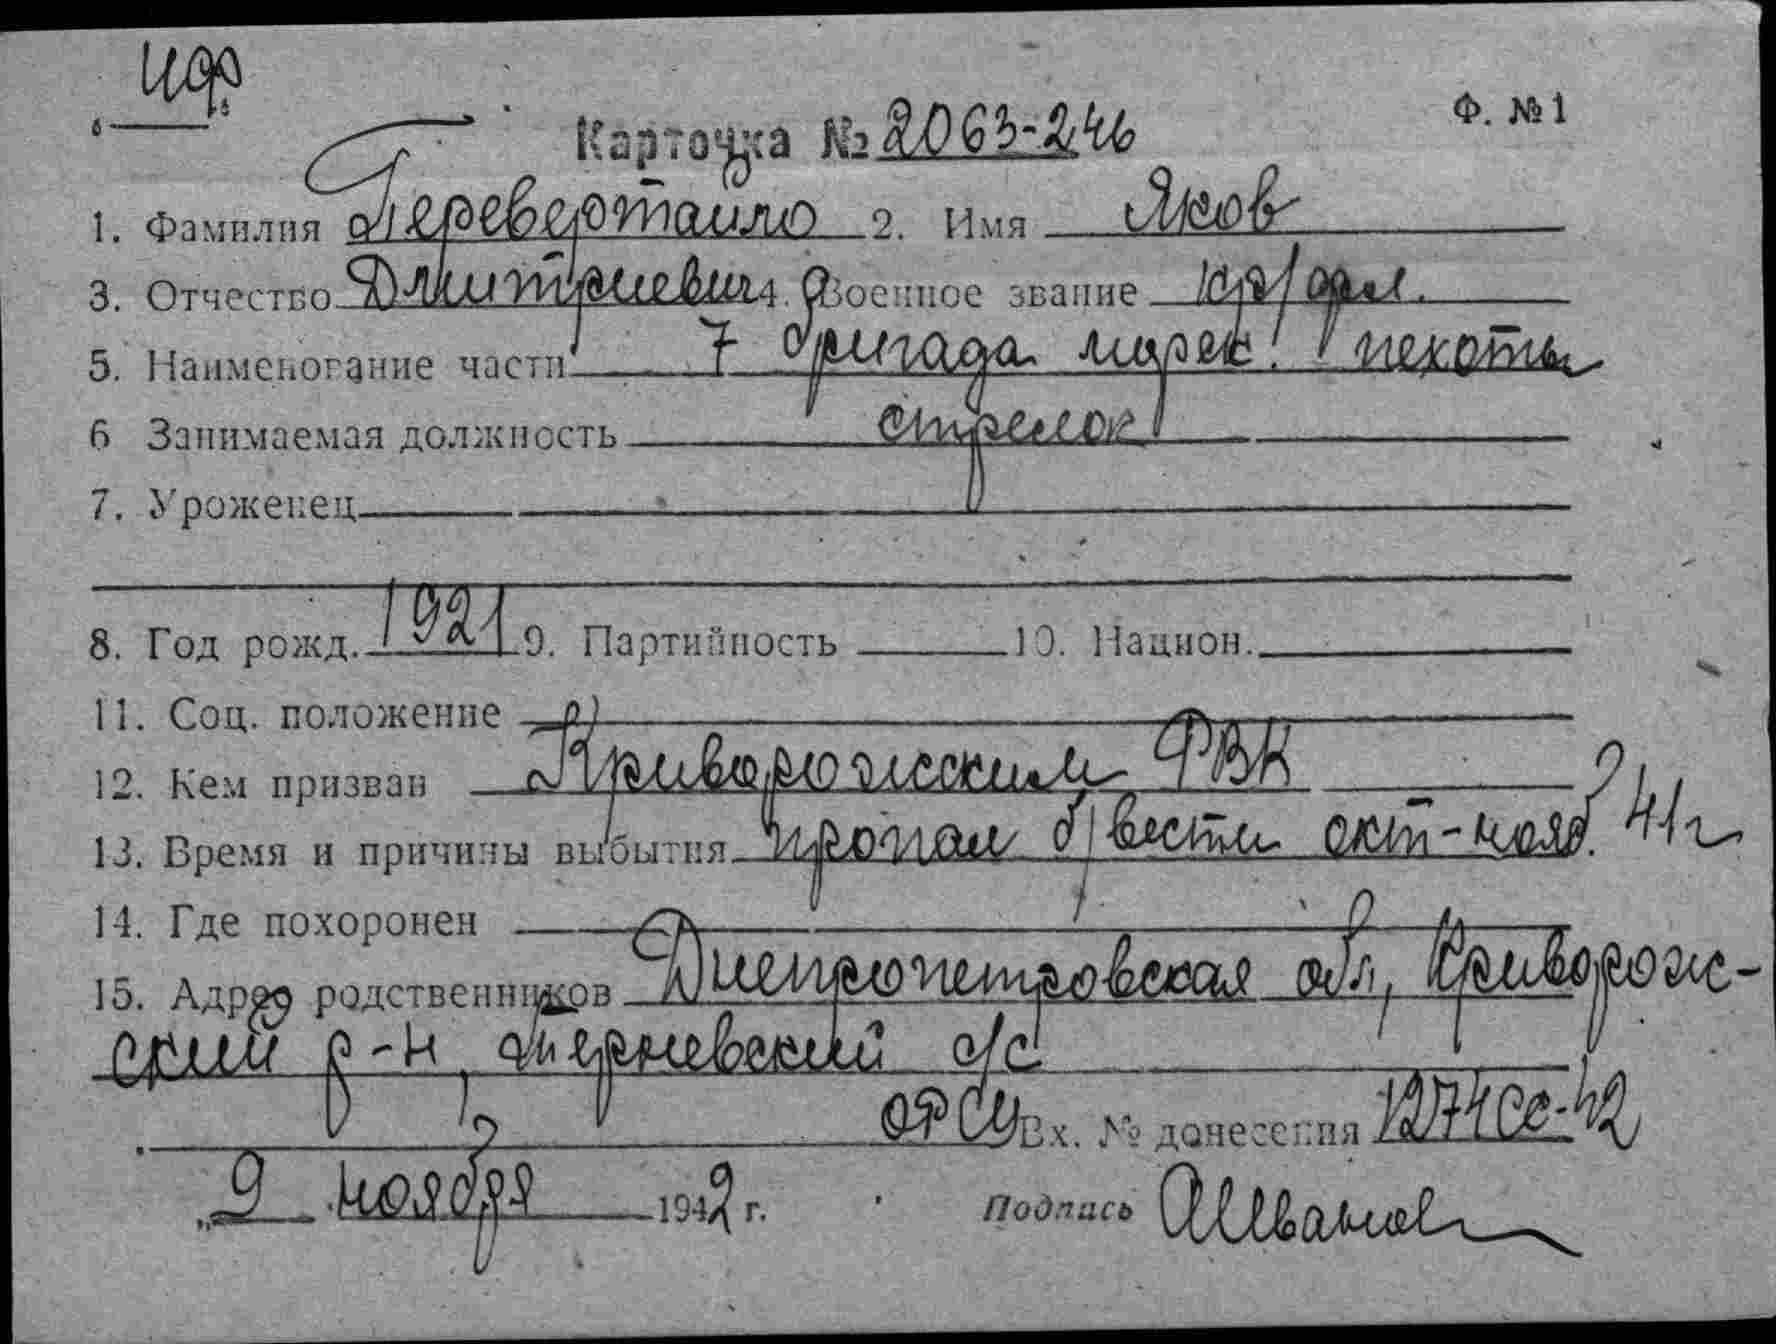 Ф. №1
Карточка № 2063-246
1. Фамилия Перевертайло 2. Имя Яков
3. Отчество Дмитриевич 4. Военное звание кр/фл.
5. Наименование части 7 бригада морск. пехоты
6 Занимаемая должность стрелок
7. Уроженец
8. Год рожд. 1921 9. Партийность 10. Национ.
11. Соц. положение
12. Кем призван Криворожским РВК
13. Время и причины выбытия пропал б/вести окт-нояб. 41г
14. Где похоронен
15. Адрес родственников Днепропетровская обл, Криворож-
ский р-н, Терневский с/с
Вх. № донесения 1274сс-42
„9 ноября 1942 г. Подпись